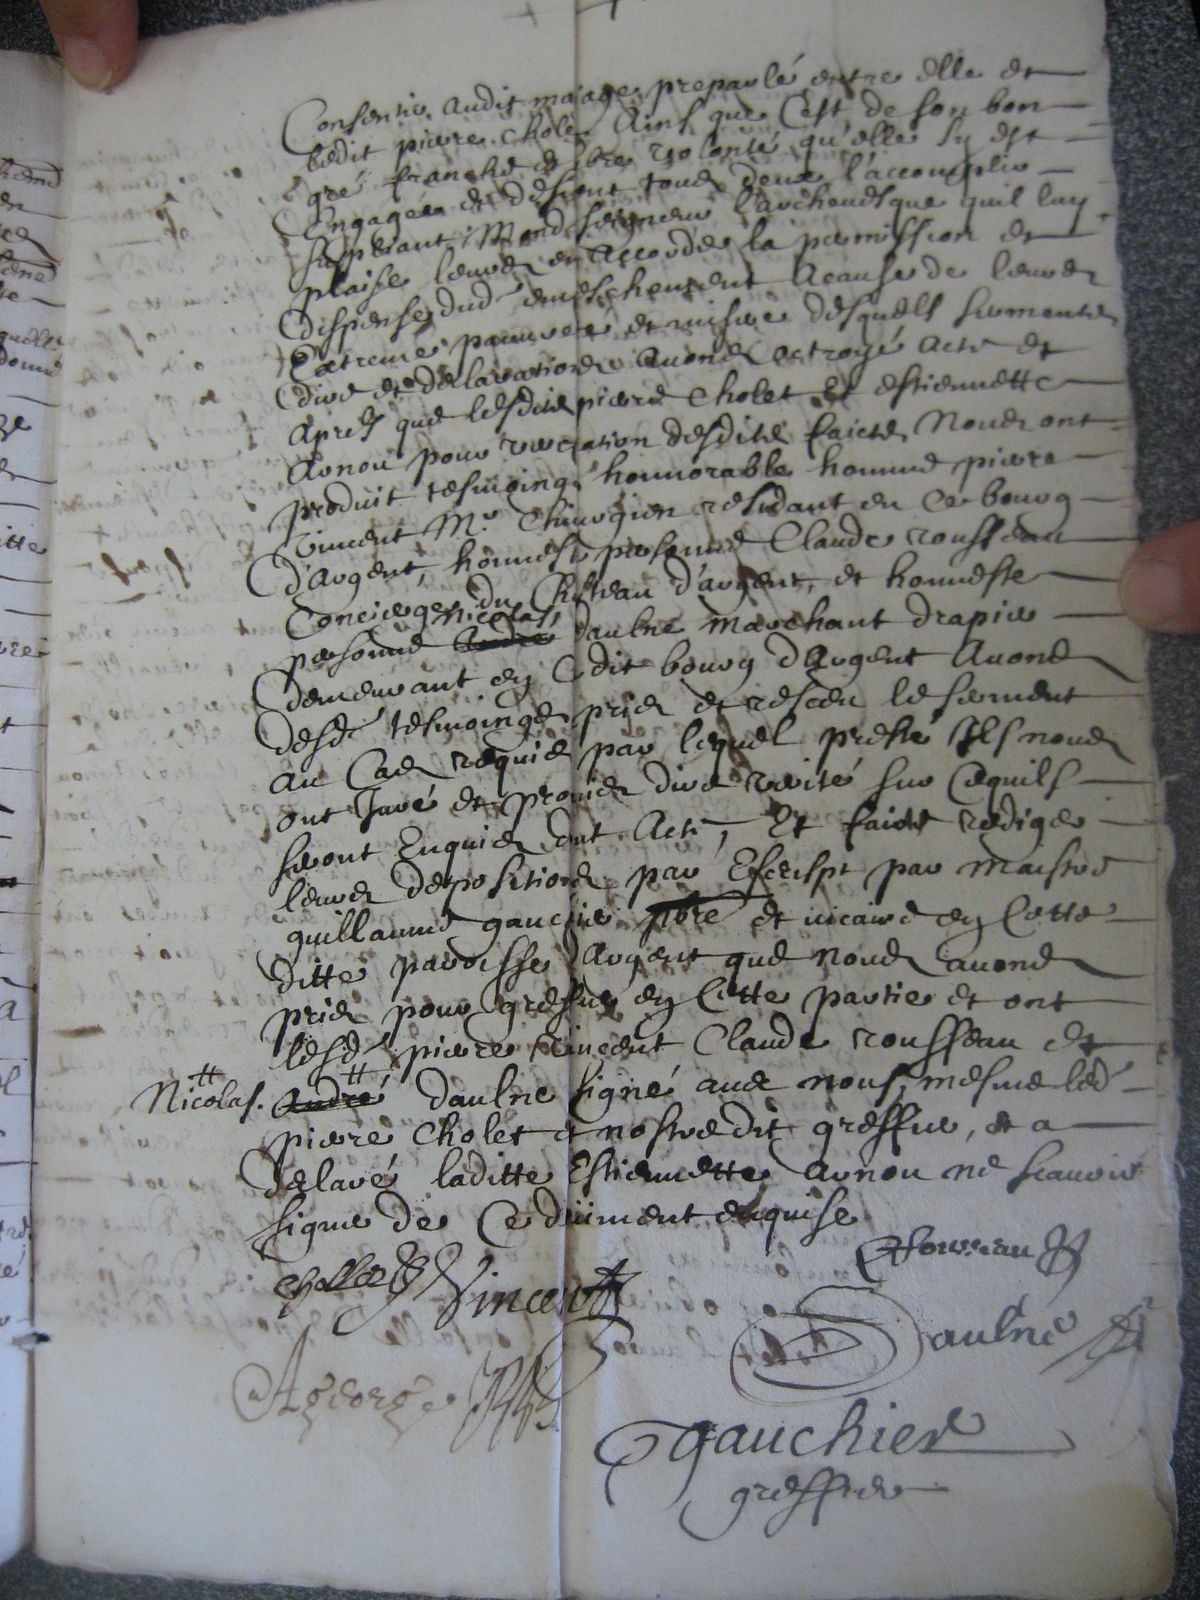 Consentir audit mariage preparlé entre elle et
ledit pierre cholet Ains que C'est de son bon
gré franche et libre volonté qu'elle s'y est
Engagée et desirent tous deux l'accomplir
suppliant Mondseigneur l'archevesque quil luy
plaise leurs en accorder la permission et
dispense dud empeschement Acause de leurs
Extreme pauvreté et misere desquels serments
dire et declarations avons octroyé acte et
Apres que lesdits pierre cholet Et estiennette
Arnou pour verification desdits faicts Nous ont
produit tesmoings honnorable homme pierre
vincent Mᵉ Chirurgien residant en ce bourg
d'Argent, honneste personne Claude rousseau
Concierge du Chateau d'argent, et honneste
Nicolas
personne André daulne marchant drapier
demeurant en Cedit bourg d'Argent Avons
desd tesmoings pris et reçeu le serment
au Cas requis par lequel presté Ils nous
ont Juré et promis dire verité sur Cequils
seront Enquis dont Acte, Et faict rediger
leurs depositions par Escript par Maistre
guillaume gauchier pbre et vicaire en Cette
ditte paroisse d'Argent que nous avons
pris pour greffier en Cette partie et ont
lesd pierre vincent Claude rousseau et
Nicolas. André daulne signé avec nous, mesme led
pierre Cholet et nostredit greffier, et a
delaré laditte Estiennette Arnou ne scavoir
signer de Ce düiment enquise
Rousseau
Chollet Vincent
Daulne
A george
gauchier
greffier